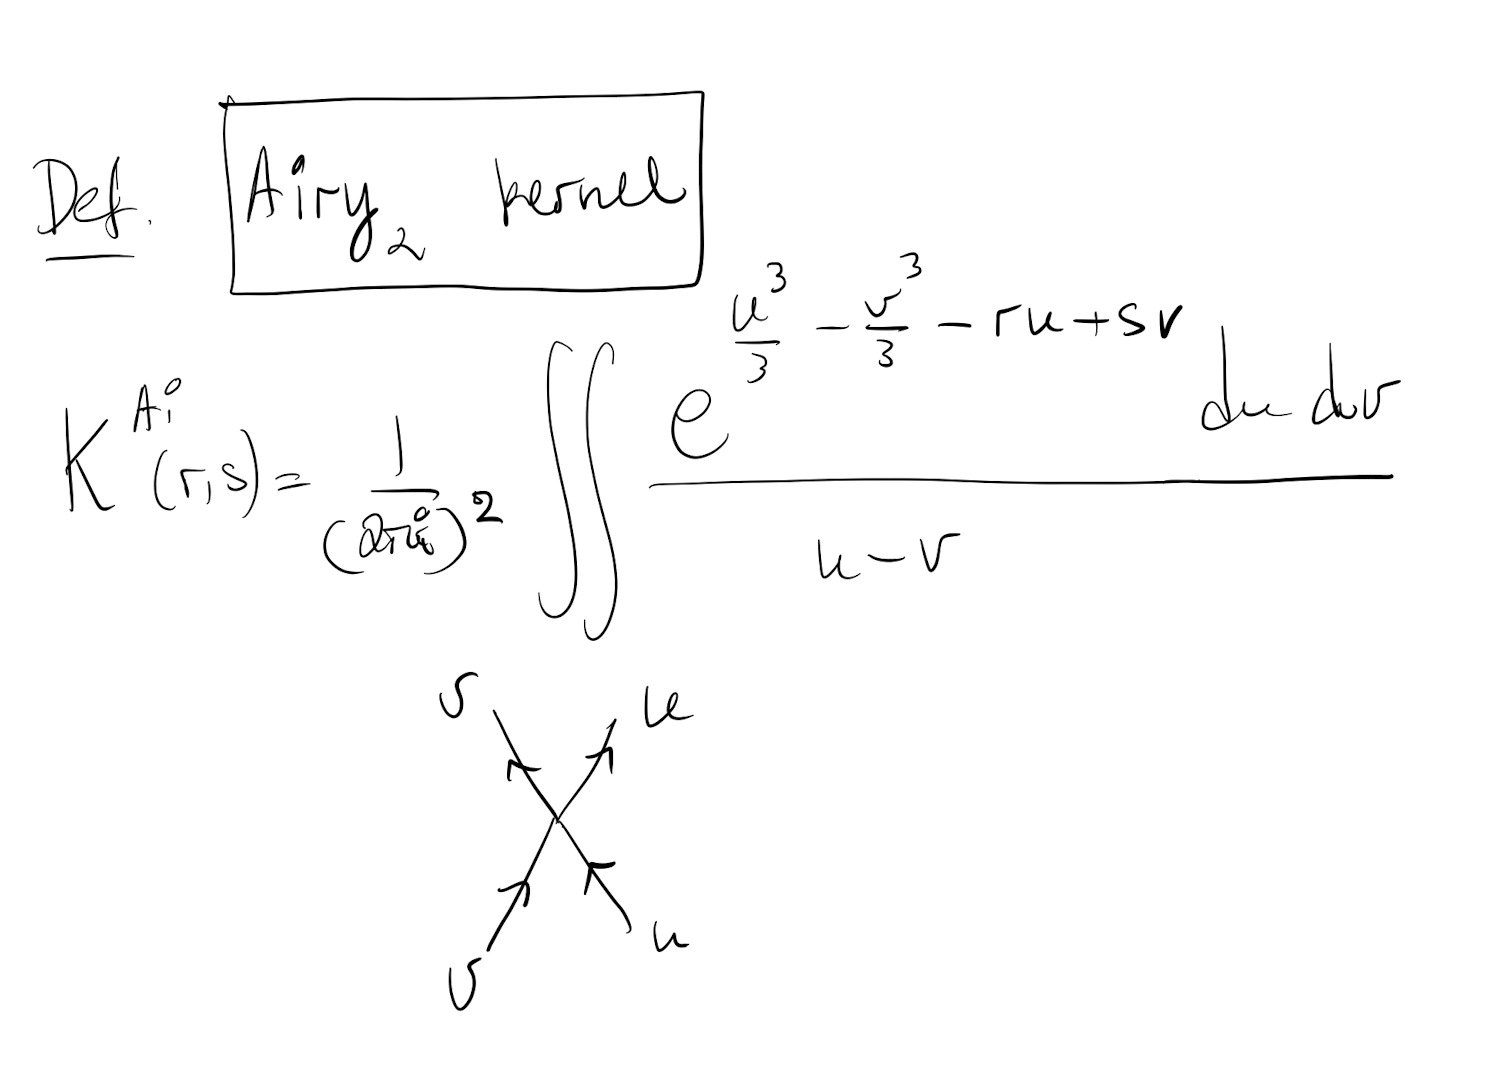 Def. Airy₂ kernel
K^{Ai}(r,s) = \frac{1}{(2πi)^2} \iint \frac{e^{\frac{u^3}{3} - \frac{v^3}{3} - ru + sv} du dv}{u - v}
v u
v u